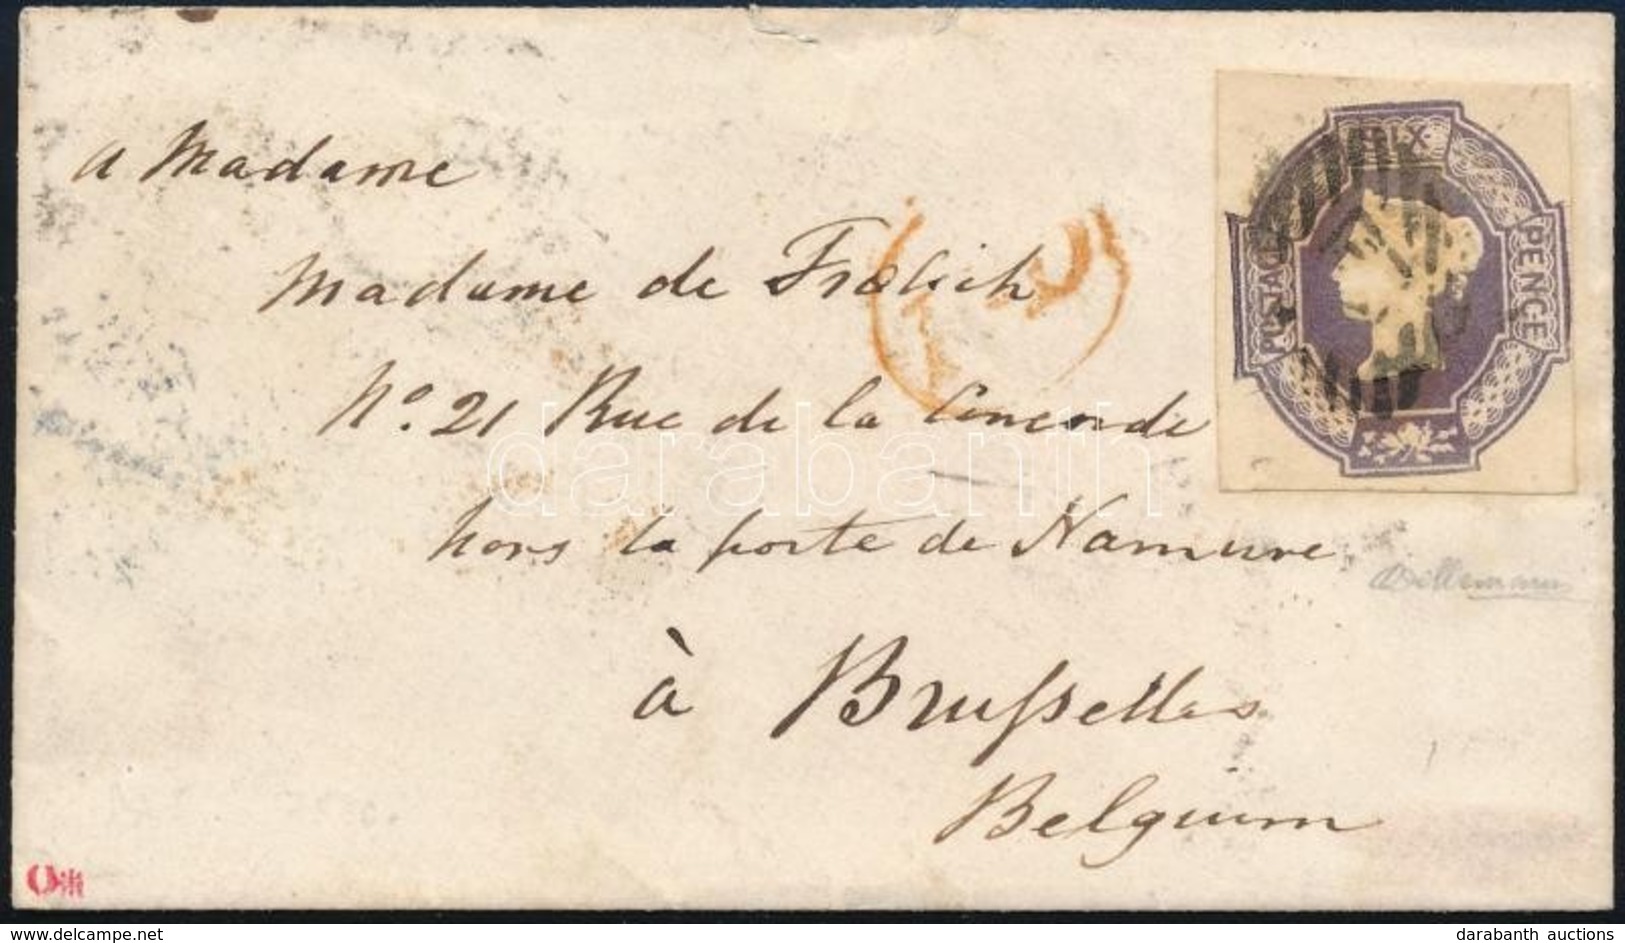 a Madame
Madame de Frölich
No. 21 Rue de la Concorde
hors la porte de Namure
à Bruſselles
Belgium
SIX
POSTAGE
PENCE
darabanth
www.delcampe.net
darabanth auctions